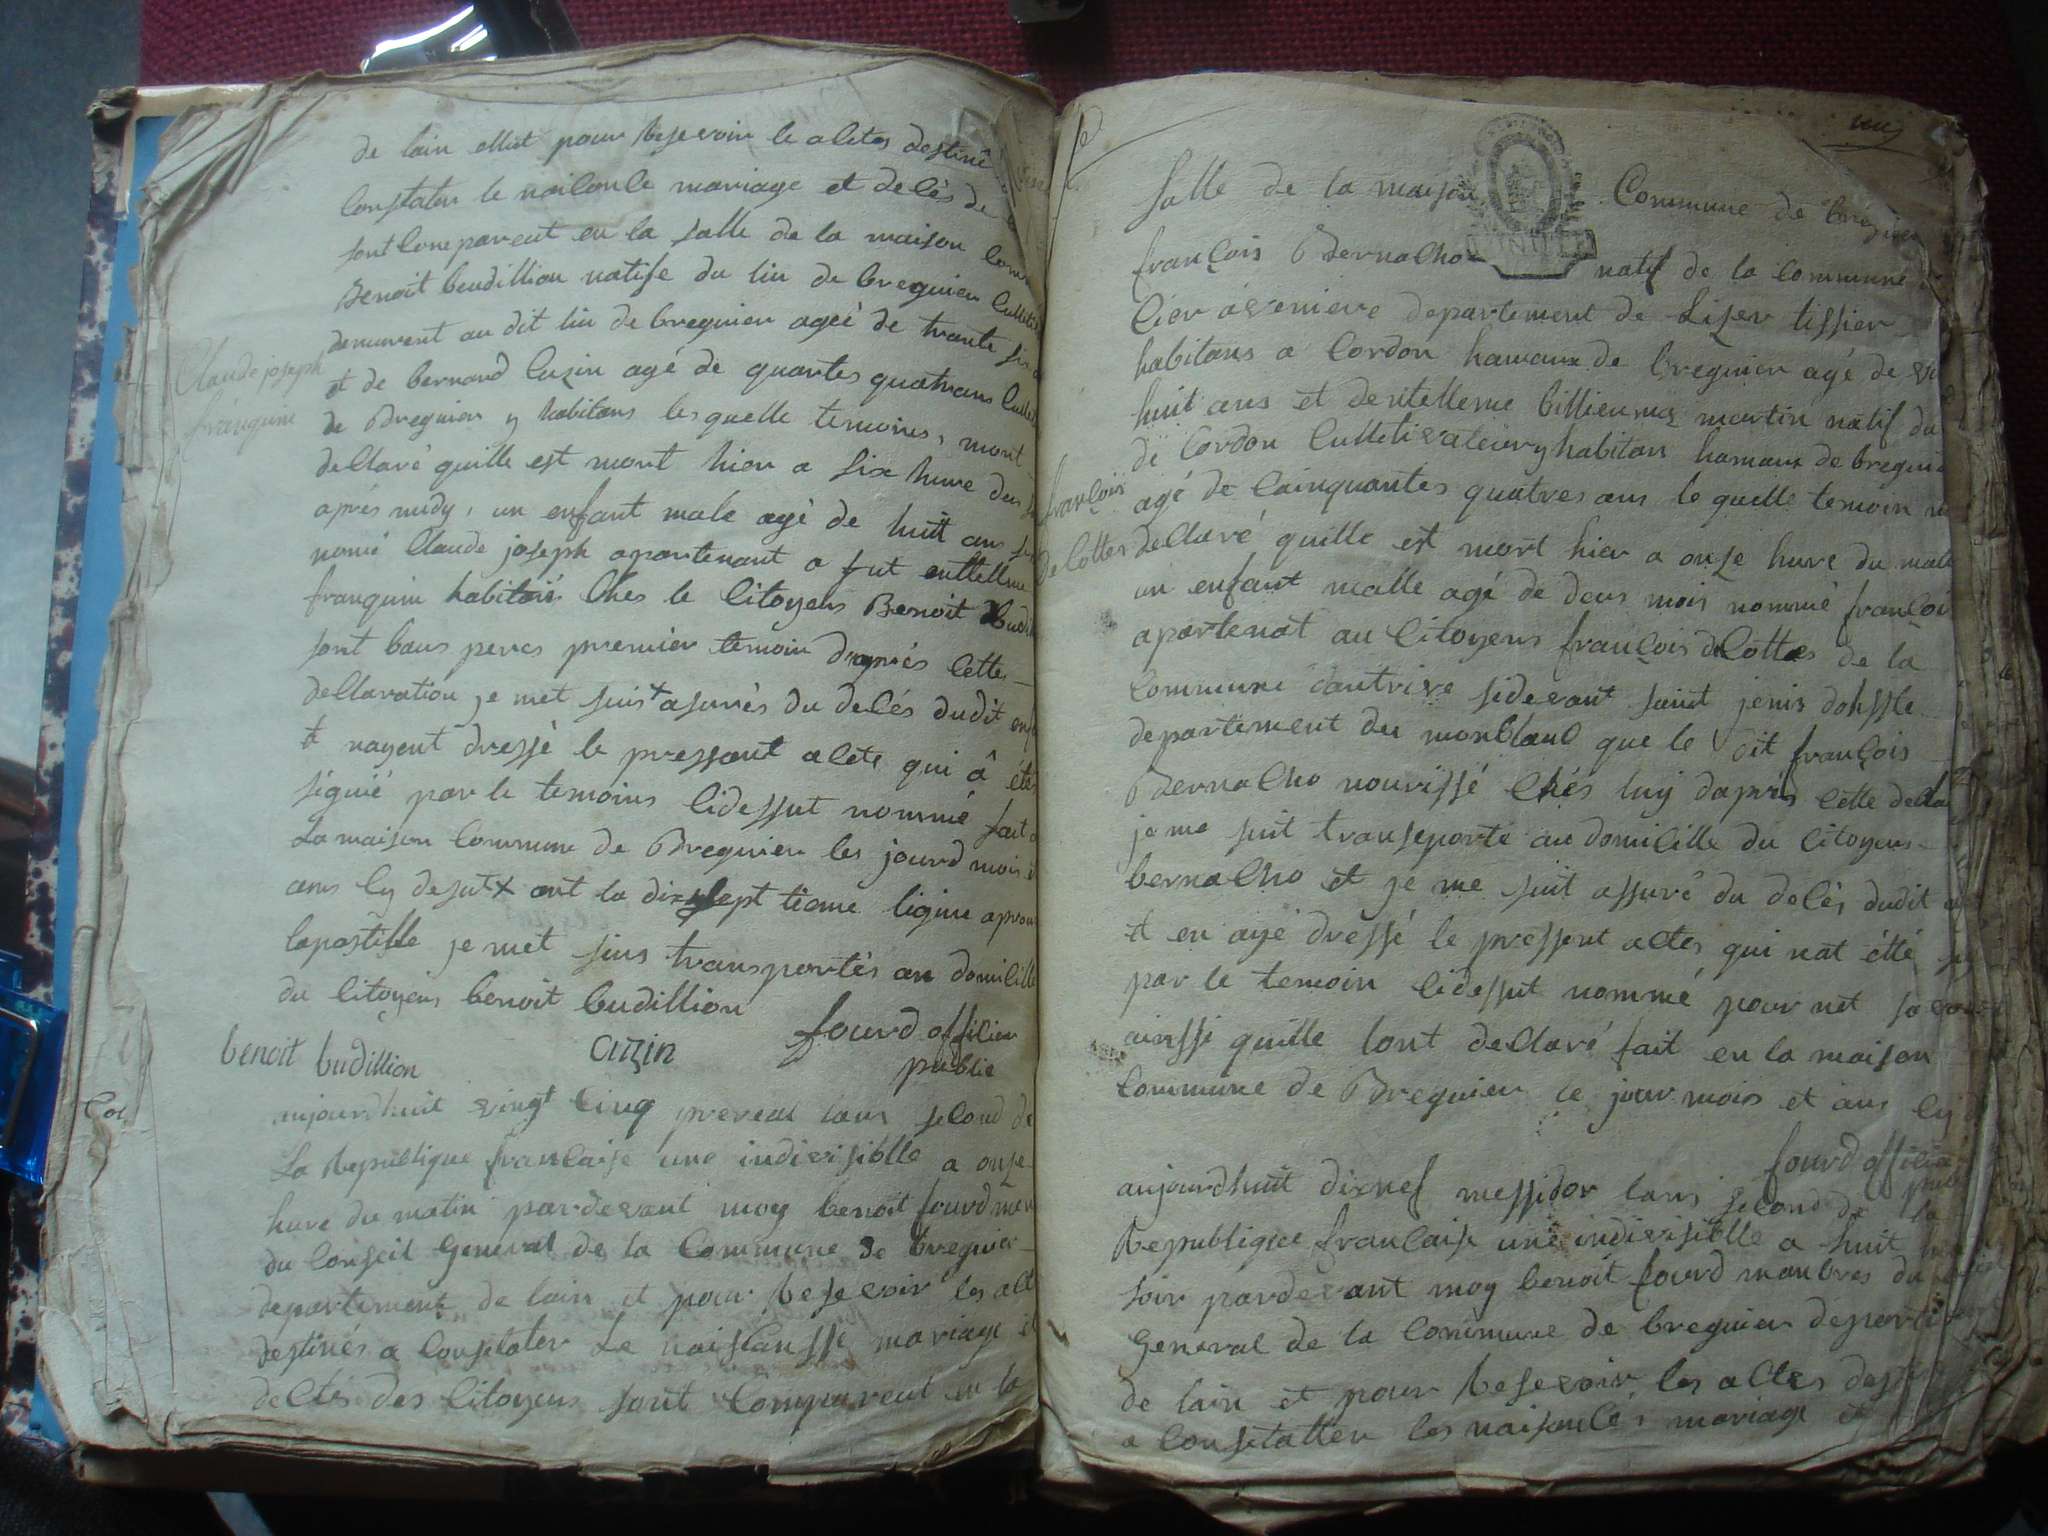 de lain ettut pour Resevoir le aletes destiné
Constater le naisanle mariage et delés de
sont Comparent en la salle de la maison Com
Benoit beudillion natife du liu de breguier Cultit
demeurent au dit liu de breguier ageé de trante six
Claude joseph
franquine
et de bernard Cuzin agé de quartes quatrans Cultit
de Breguier y habitans les quelle temoins, mont
decllaré quille est mort hier a six hure deu
aprés midy, un enfant male agé de huitt ans
nomé Claude joseph apartenant a fut
franquin habitan Ches le Citoyens Benoit Budi
sont baus peres premier temoin daprés cette
decllaration je met suis + asurés du delés dudit enf
et nayent dressé le pressant alete qui â été
signié par le temoins cidessut nommé fait a
La maison Commune de Breguier les jourd mois et
ans cy desut + ant la dixsept tieme ligine aprou
lapostille je met sius transportés au domicille
du Citoyens benoit budillion
fourd offilier
publie
benoit budillion
Cuzin
Col
aujourdhuit vingt cinq prereal lans second de
La Republique francaise une indivisiblle a onze
hure du matin pardevant moy benoit fourd men
du Conseil General de la Commune de breguier
departement de lain et pour Resevoir les alt
destinés a Constater Le naissansse mariage et
delés des Citoyens sont Comparent en la
Salle de la maison Commune de breguier
françois Bernalho natif de la commune
departement de Liser tissier
habitans a Cordon hamaux de breguier agé de vi
huit ans et martin natif du
de Cordon Culletivateur y habitan hamaux de bregui
françois
delottes
agé de Cainquantes quatres ans le quelle temoin
decllaré quille est mort hier a onze hure du mati
un enfant malle agé de deus mois nommé françoi
apartenat au Citoyens françois delottes de la
Commune dautrive sidevant saint jenis
departement du monblanc que le dit françois
Bernalho nourissé chés luy daprés cette declla
je me suit transeporté au domicille du Citoyens
bernalho et je me suit assuré du delés dudit
et en ayé dressé le pressent altes qui nat étté
par le temoin cidessut nommé pour net
ainssi quille lont decllaré fait en la maison
Commune de Breguier ce jour mois et ans cy
fourd offilier
aujourdhuit dixnef messidor lans second de la
Republique francaise une indivisiblle a huit
soir pardevant moy benoit fourd manbres du
General de la Commune de breguier deparetem
de lain et pour Resevoir les altes desti
a Consetatter les naisanle, mariage et